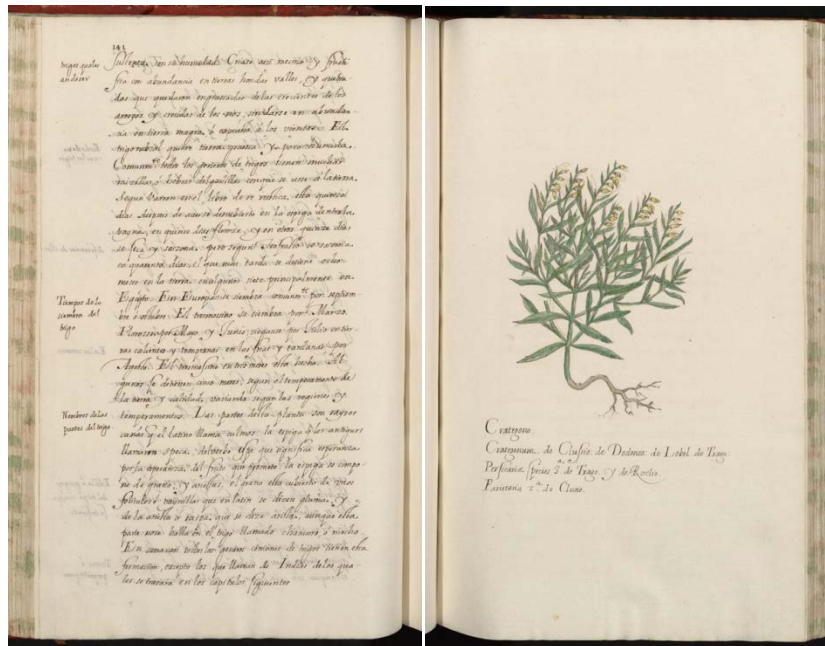 141
trigos quales
an de ser
sustenta con su humedad. Criase assi mesmo y fructi
fica con abundancia en tierras hondas valles, y quebra
das que quedaron engrassadas de las crecientes de los
arroyos y crecidas de los rios,
cia en tierra magra, ó
trigo rubial quiere tierra y poco
Comunmte todos los generos de trigos tienen muchas
raicillas, ó hebras delgadillas con que se asse á la tierra.
Segun Varron en el libro de re rustica, esta quinze
dias despues de
en quinze dias florece, y en otros quinze dias
se seca y sazona, pero segun
en quarenta dias, el que mas tarda se detiene ocho
meses en la tierra, en algunos siete principalmente en
Egipto. En Europa se siembra comunmte por septiem
bre ó otubre. El tremesino se siembra por Março.
Tiempos de la
siembra del
trigo
Florece por Mayo y Junio, siegasse por Julio en tier
ras calientes y tempranas, en las frias y tardanas por
Agosto. El tremesino en tres meses esta hecho. Al
gunas se detienen cinco meses, segun el temperamento de
la tierra y calidad, variando segun las regiones y
Nombres de las
partes del trigo
temperamentos. Las partes desta planta son rayzes
cañas y el latino llama culmos, la espiga que los antiguos
llamaron speca, del verbo spe que significa esperanza
por la esperanza del fruto que promete; la espiga se compo
ne de granos, y aristas, el grano esta cubierto de unos
folliculos ó vaynillas que en latin se dizen gluma, y
de la arista ó raspa, que se dize arista, aunque esta
parte no se halla en el trigo llamado chamorro, ó mocho.
En sumacion todos los generos comunes de trigos tienen esta
formacion, excepto los que llaman de Indias de los qua
les se tratará en los capitulos siguientes
Crategono.
Crategonum. de Clusio. de Dodonea. de Lobel. de Trago.
Persicaria species 2.ª de Trago. y de Roelio.
Parietaria 2.ª de Clusio.